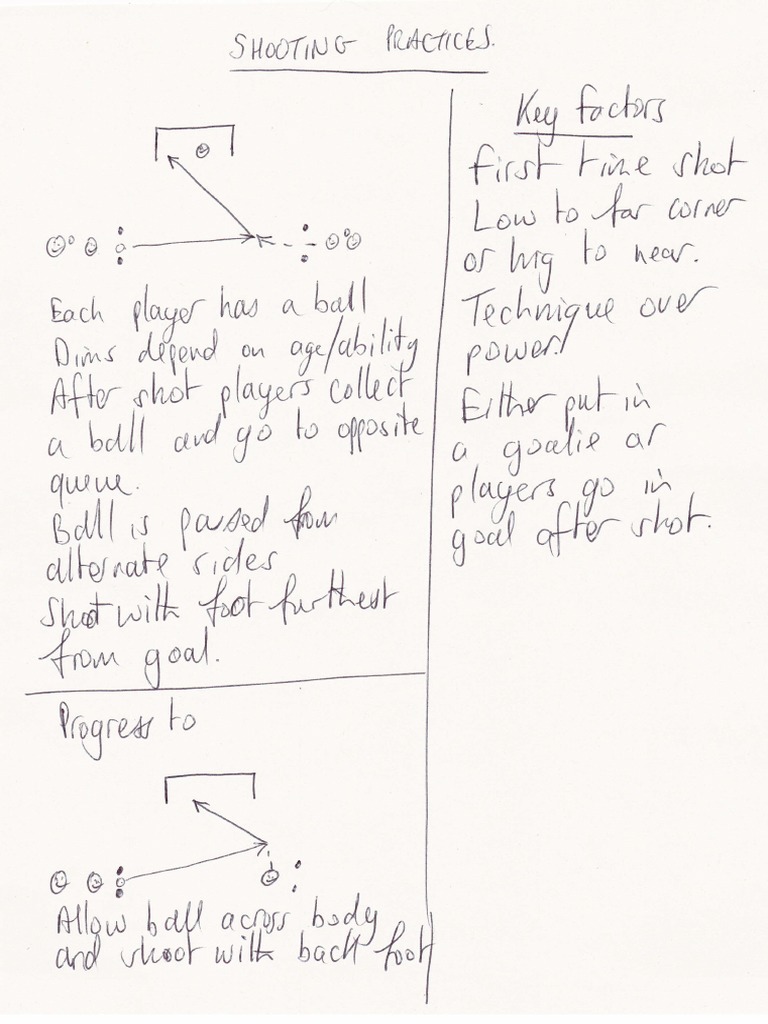 SHOOTING PRACTICES.
Each player has a ball
Dims depend on age/ability
After shot players collect
a ball and go to opposite
queue.
Ball is passed from
alternate sides
Shoot with foot furthest
from goal.
Progress to
Allow ball across body
and shoot with back foot
Key factors
first time shot
Low to far corner
or hig to near.
Technique over
power!
Either put in
a goalie or
players go in
goal after shot.